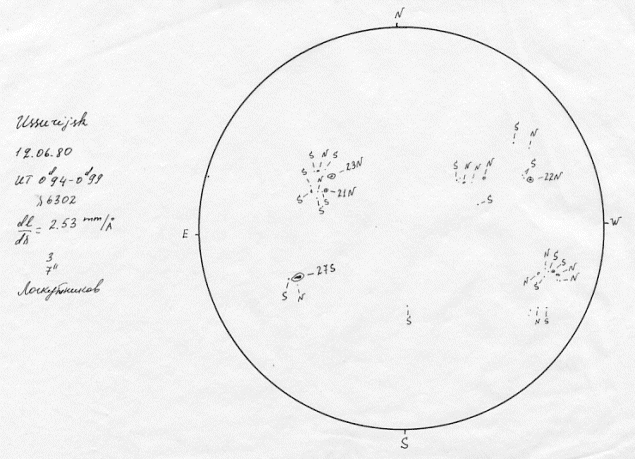 Ussurijsk
12.06.80
UT 0ᵈ94-0ᵈ99
λ6302
dl/dλ = 2.53 mm/Å
3
7"
Лоскутников
N
S N S
S N
23N
N
S
21N
S
S
S N N N
S
S
22N
E
W
27S
S N
N S S
N
N S N
S
N S
S